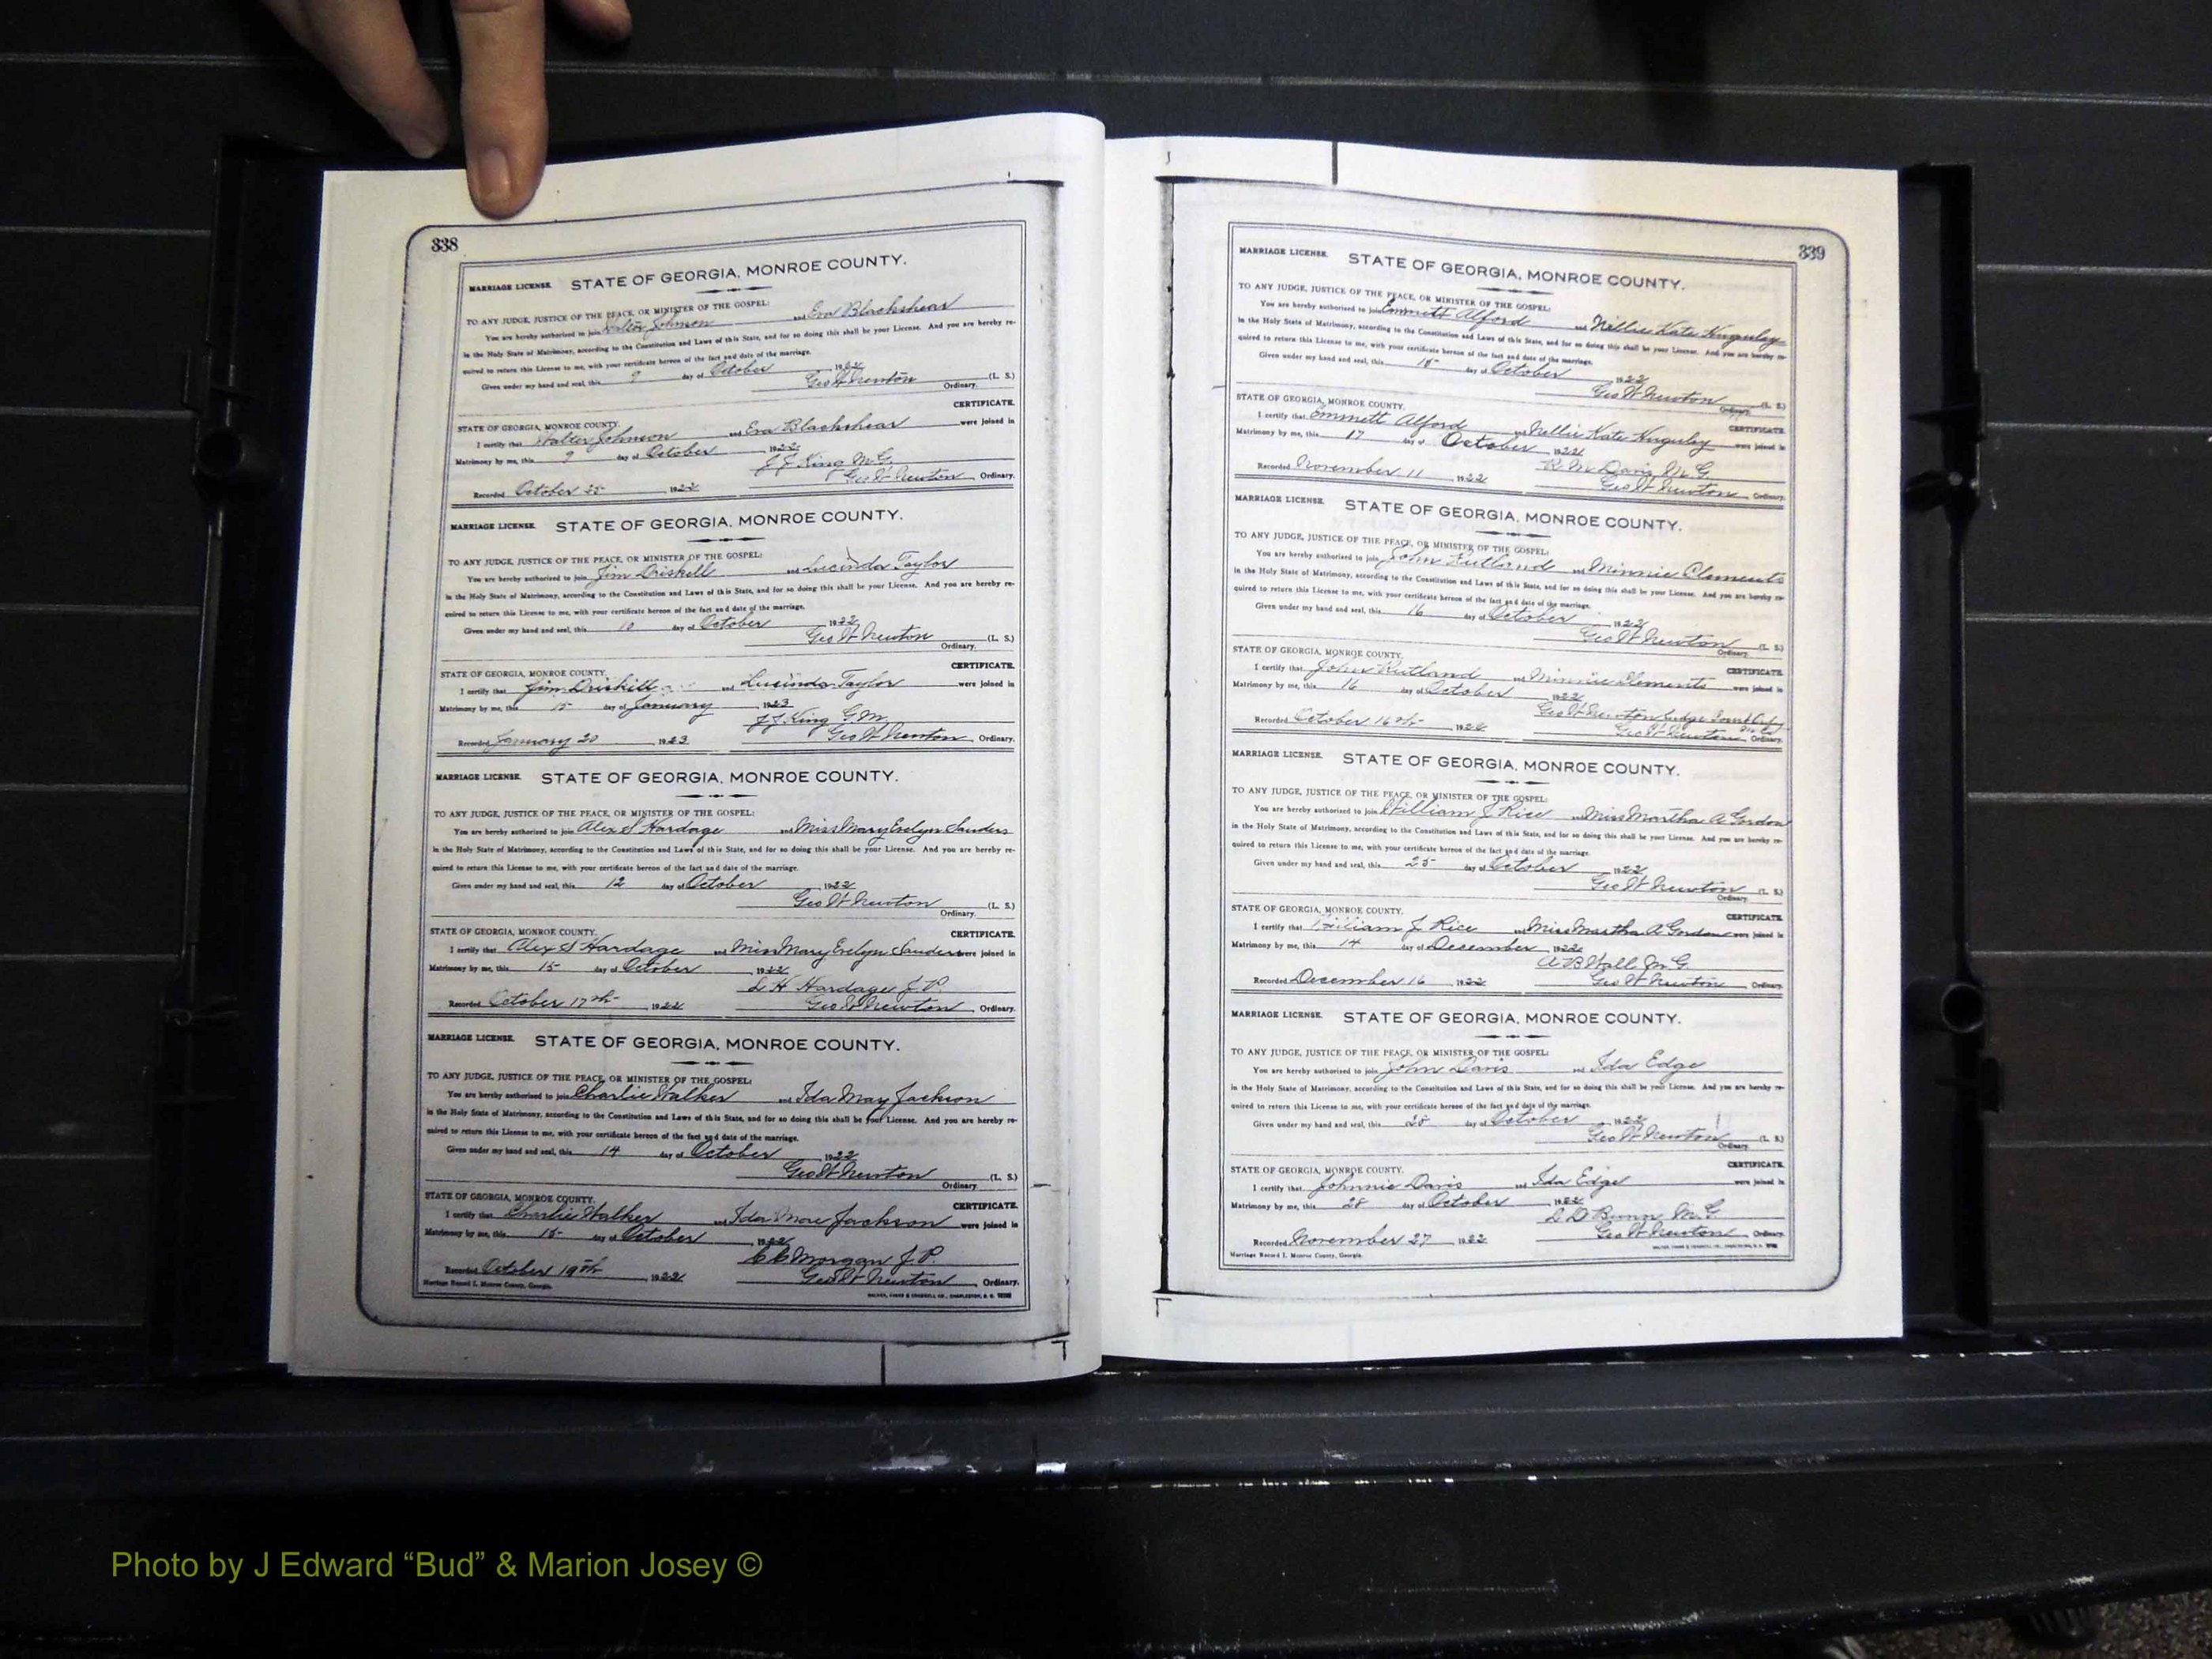 338
MARRIAGE LICENSE. STATE OF GEORGIA, MONROE COUNTY.
TO ANY JUDGE, JUSTICE OF THE PEACE, OR MINISTER OF THE GOSPEL:
You are hereby authorised to join Walter Johnson and Eva Blackshear
in the Holy State of Matrimony, according to the Constitution and Laws of this State, and for so doing this shall be your License. And you are hereby re-
quired to return this License to me, with your certificate hereon of the fact and date of the marriage.
Given under my hand and seal, this 9 day of October 1922
Geo W Newton (L. S.)
Ordinary.
CERTIFICATE.
STATE OF GEORGIA, MONROE COUNTY.
I certify that Walter Johnson and Eva Blackshear were joined in
Matrimony by me, this 9 day of October, 1922
J J King M G
Recorded October 25 1922 Geo W Newton, Ordinary.
MARRIAGE LICENSE. STATE OF GEORGIA, MONROE COUNTY.
TO ANY JUDGE, JUSTICE OF THE PEACE, OR MINISTER OF THE GOSPEL:
You are hereby authorised to join Jim Driskell and Lucinda Taylor
in the Holy State of Matrimony, according to the Constitution and Laws of this State, and for so doing this shall be your License. And you are hereby re-
quired to return this License to me, with your certificate hereon of the fact and date of the marriage.
Given under my hand and seal, this 10 day of October 1922
Geo W Newton (L. S.)
Ordinary.
CERTIFICATE.
STATE OF GEORGIA, MONROE COUNTY.
I certify that Jim Driskill and Lucinda Taylor were joined in
Matrimony by me, this 15 day of January, 1923
J J King G. M.
Recorded January 20, 1923 Geo W Newton, Ordinary.
MARRIAGE LICENSE. STATE OF GEORGIA, MONROE COUNTY.
TO ANY JUDGE, JUSTICE OF THE PEACE, OR MINISTER OF THE GOSPEL:
You are hereby authorised to join Alex S Hardage and Miss Mary Evelyn Sanders
in the Holy State of Matrimony, according to the Constitution and Laws of this State, and for so doing this shall be your License. And you are hereby re-
quired to return this License to me, with your certificate hereon of the fact and date of the marriage.
Given under my hand and seal, this 12 day of October, 1922
Geo W Newton (L. S.)
Ordinary.
STATE OF GEORGIA, MONROE COUNTY. CERTIFICATE.
I certify that Alex S Hardage and Miss Mary Evelyn Sanders were joined in
Matrimony by me, this 15 day of October, 1922
L H Hardage J. P.
Recorded October 17th, 1922 Geo W Newton, Ordinary.
MARRIAGE LICENSE. STATE OF GEORGIA, MONROE COUNTY.
TO ANY JUDGE, JUSTICE OF THE PEACE, OR MINISTER OF THE GOSPEL:
You are hereby authorised to join Charlie Walker and Ida May Jackson
in the Holy State of Matrimony, according to the Constitution and Laws of this State, and for so doing this shall be your License. And you are hereby re-
quired to return this License to me, with your certificate hereon of the fact and date of the marriage.
Given under my hand and seal, this 14 day of October 1922
Geo W Newton (L. S.)
Ordinary.
STATE OF GEORGIA, MONROE COUNTY. CERTIFICATE.
I certify that Charlie Walker and Ida Mae Jackson were joined in
Matrimony by me, this 15 day of October, 1922
C C Morgan J. P.
Recorded October 19th, 1922 Geo W Newton, Ordinary.
Marriage Record I. Monroe County, Georgia.
339
MARRIAGE LICENSE. STATE OF GEORGIA, MONROE COUNTY.
TO ANY JUDGE, JUSTICE OF THE PEACE, OR MINISTER OF THE GOSPEL:
You are hereby authorised to join Emmett Alford and Nellie Kate
in the Holy State of Matrimony, according to the Constitution and Laws of this State, and for so doing this shall be your License. And you are hereby re-
quired to return this License to me, with your certificate hereon of the fact and date of the marriage.
Given under my hand and seal, this day of October 1922
Geo W Newton (L. S.)
Ordinary.
STATE OF GEORGIA, MONROE COUNTY. CERTIFICATE.
I certify that Emmett Alford and Nellie Kate were joined in
Matrimony by me, this 17 day of October, 1922
R M Davis M. G.
Recorded November 11, 1922 Geo W Newton, Ordinary.
MARRIAGE LICENSE. STATE OF GEORGIA, MONROE COUNTY.
TO ANY JUDGE, JUSTICE OF THE PEACE, OR MINISTER OF THE GOSPEL:
You are hereby authorised to join John Rutland and Minnie Clements
in the Holy State of Matrimony, according to the Constitution and Laws of this State, and for so doing this shall be your License. And you are hereby re-
quired to return this License to me, with your certificate hereon of the fact and date of the marriage.
Given under my hand and seal, this 16 day of October, 1922
Geo W Newton (L. S.)
Ordinary.
STATE OF GEORGIA, MONROE COUNTY. CERTIFICATE.
I certify that John Rutland and Minnie Clements were joined in
Matrimony by me, this 16 day of October 1922
Geo W Newton Judge
Recorded October 16th, 1922 Geo W Newton Ordinary.
MARRIAGE LICENSE. STATE OF GEORGIA, MONROE COUNTY.
TO ANY JUDGE, JUSTICE OF THE PEACE, OR MINISTER OF THE GOSPEL:
You are hereby authorised to join William J Rice and Miss Martha A Gordon
in the Holy State of Matrimony, according to the Constitution and Laws of this State, and for so doing this shall be your License. And you are hereby re-
quired to return this License to me, with your certificate hereon of the fact and date of the marriage.
Given under my hand and seal, this 25 day of October, 1922
Geo W Newton (L. S.)
Ordinary.
STATE OF GEORGIA, MONROE COUNTY. CERTIFICATE.
I certify that William J Rice and Miss Martha A Gordon were joined in
Matrimony by me, this 14 day of December, 1922
A B Wall M. G.
Recorded December 16, 1922 Geo W Newton, Ordinary.
MARRIAGE LICENSE. STATE OF GEORGIA, MONROE COUNTY.
TO ANY JUDGE, JUSTICE OF THE PEACE, OR MINISTER OF THE GOSPEL:
You are hereby authorised to join John Davis and Ida Edge
in the Holy State of Matrimony, according to the Constitution and Laws of this State, and for so doing this shall be your License. And you are hereby re-
quired to return this License to me, with your certificate hereon of the fact and date of the marriage.
Given under my hand and seal, this day of October, 1922
Geo W Newton (L. S.)
Ordinary.
STATE OF GEORGIA, MONROE COUNTY. CERTIFICATE.
I certify that Johnnie Davis and Ida Edge were joined in
Matrimony by me, this 28 day of October, 1922
D Bunn M. G.
Recorded November 27, 1922 Geo W Newton, Ordinary.
Marriage Record I. Monroe County, Georgia.
Photo by J Edward “Bud” & Marion Josey ©